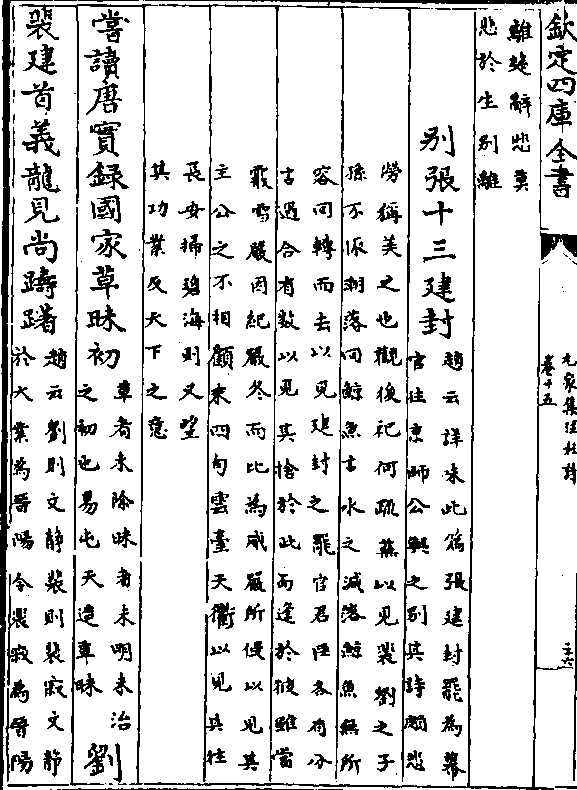 欽定四庫全書
九家集注杜詩
卷十五
三六
離建辭悲莫
悲於生别離
别張十三建封
趙云詳未此篇張建封罷為幕
官往京師公與之别其詩頗悲
勞稱美之也觀後祀何疏蕪以見裴劉之子
孫不依潮落回鯨魚言水之減落鯨魚無所
容回轉而去以見建封之罷官君臣各有分
言遇合有數以見其捨於此而逢於彼雖當
霰雪嚴因紀嚴冬而比為威嚴所侵以見其
主公之不相顧末四句雲臺天衢以見其往
長安掃碧海則又望
其功業及天下之意
嘗讀唐實録國家草昧初
草者未除昧者未明未治
之初也易屯天造草昧
劉
裴建首義龍見尚躊躇
趙云劉則文静裴則裴寂文静
於大業為晉陽令裴寂為晉陽